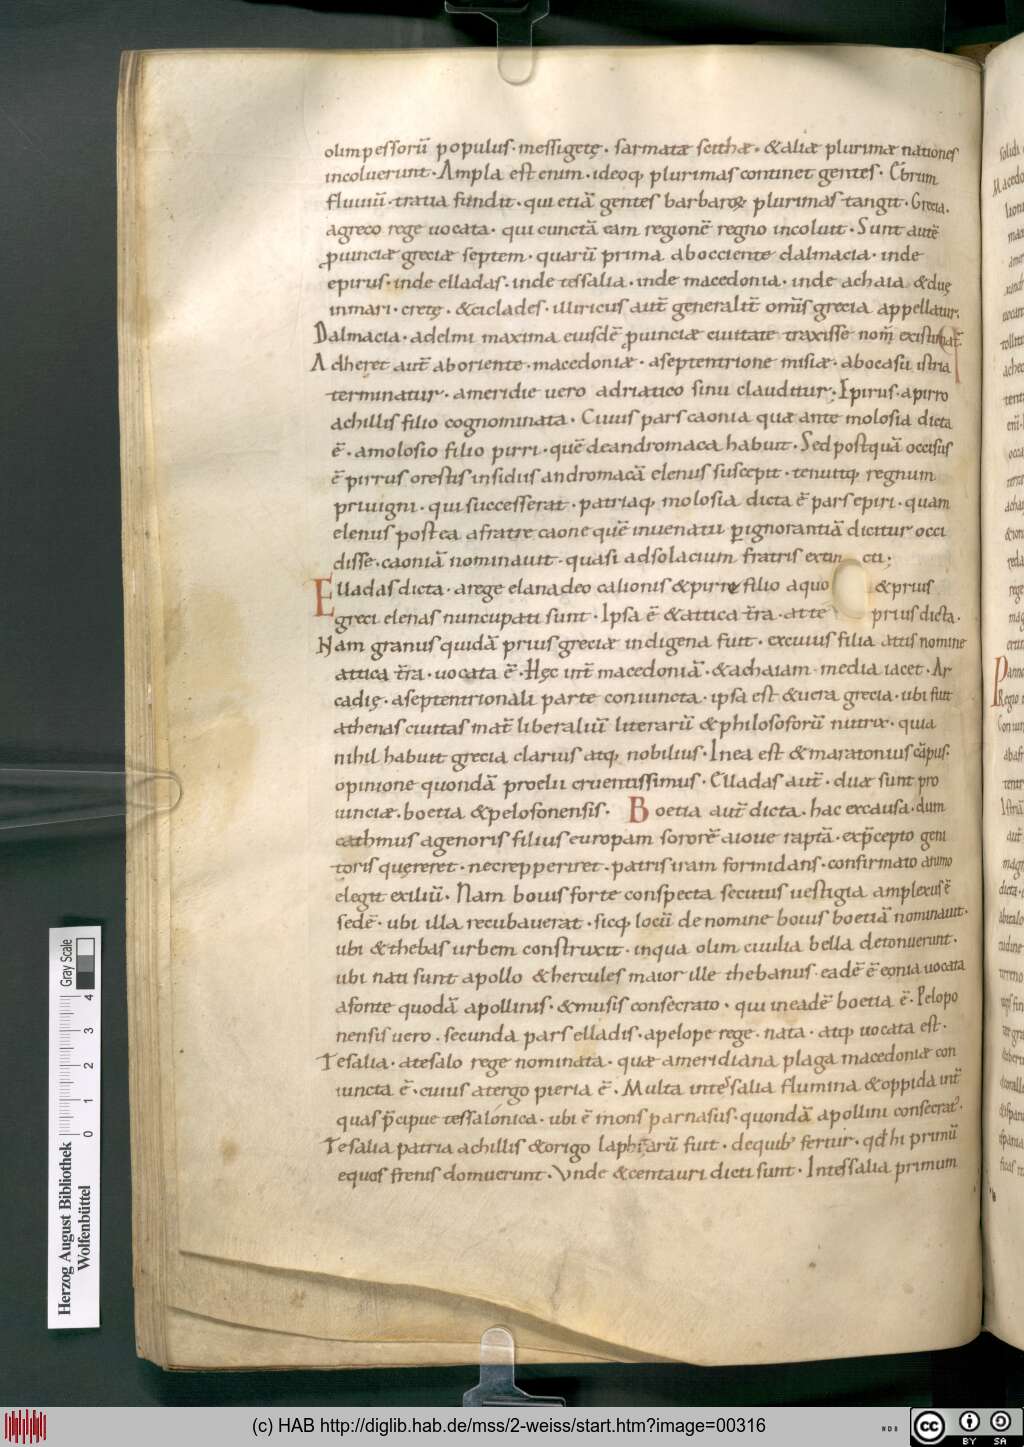 olimpessorũ populus· messigetę · sarmatæ scithæ · &aliæ plurimæ nationes
incoluerunt · Ampla est enim · ideoq; plurimas continet gentes ·
fluuiũ · tratia fundit · qui etiã gentes barbaroꝝ plurimas tangit · Grecia ·
agreco rege uocata · qui cunctã eam regionẽ regno incoluit · Sunt autẽ
ꝓuinciæ greciæ septem · quarũ prima aboccidente dalmacia · inde
epirus · inde elladas · inde tessalia · inde macedonia · inde achaia &duę
inmari · cretę · &ciclades · illiricus aut̃ generalit̃ om̃is grecia appellatur ·
Dalmacia · adelmi maxima eiusdẽ ꝓuinciæ ciuitate traxisse nom̃ existimat̃
Adheret aut̃ aboriente · macedoniæ · aseptentrione misiæ · abocasu istria
terminatur · ameridie uero adriatico sinu clauditur; Epirus · apirro
achillis filio cognominata · Cuius pars caonia quæ ante molosia dicta
ẽ · amolosio filio pirri · quẽ deandromaca habuit · Sed postquã occisus
ẽ pirrus orestis insidiis andromacã elenus suscepit · tenuitq; regnum
priuigni · qui successerat · patriaq; molosia dicta ẽ pars epiri · quam
elenus postea afratre caone quẽ inuenatu ꝑignorantiã dicitur occi
disse · caoniã nominauit · quasi adsolacium fratris extin cti;
Elladas dicta · arege elanadeo calionis &pirre filio aquo &prius
greci elenas nuncupati sunt · Ipsa ẽ &attica t̃ra · atte prius dicta ·
Nam granus quidã prius greciæ indigena fuit · excuius filia attis nomine
attica t̃ra · uocata ẽ · Hęc int̃ macedoniã · &achaiam · media iacet · Ar
cadię · aseptentrionali parte coniuncta · ipsa est &uera grecia · ubi fuit
athenas ciuitas mat̃ liberaliũ literarũ &philosoforũ nutrix · qua
nihil habuit grecia clarius atq; nobilius · Inea est &maratonius cãpus ·
opinione quondã proelii cruentissimus · Elladas aut̃ · duæ sunt pro
uinciæ · boetia &pelosonensis · Boetia aut̃ dicta · hac excausa · dum
cathmus agenoris filius europam sororẽ aioue raptã · exp̃cepto geni
toris quęreret · necrepperiret · patris iram formidans · confirmato animo
elegit exiliũ · Nam bouis forte conspecta secutus uestigia amplexus ẽ
sedẽ · ubi illa recubauerat · sicq; locũ de nomine bouis boetiã nominauit ·
ubi &thebas urbem construxit · inqua olim ciuilia bella detonuerunt ·
ubi nati sunt apollo &hercules maior ille thebanus · eadẽ ẽ eonia uocata
afonte quodã apollinis · &musis consecrato · qui ineadẽ boetia ẽ · Pelopo
nensis uero · secunda pars elladis · apelope rege · nata · atq; uocata est ·
Tesalia · atesalo rege nominata · quæ ameridiana plaga macedoniæ con
iuncta ẽ · cuius atergo pieria ẽ · Multa intesalia flumina &oppida int̃
quas p̃cipue tessalonica · ubi ẽ mons parnasus · quondã apollini consecrat ·
Tesalia patria achillis &origo laphitarũ fuit · dequib; fertur · qđ hi primũ
equos frenis domuerunt · Vnde &centauri dicti sunt · Intessalia primum
Herzog August Bibliothek
Wolfenbüttel
0 1 2 3 4
Gray Scale
(c) HAB http://diglib.hab.de/mss/2-weiss/start.htm?image=00316
cc BY SA